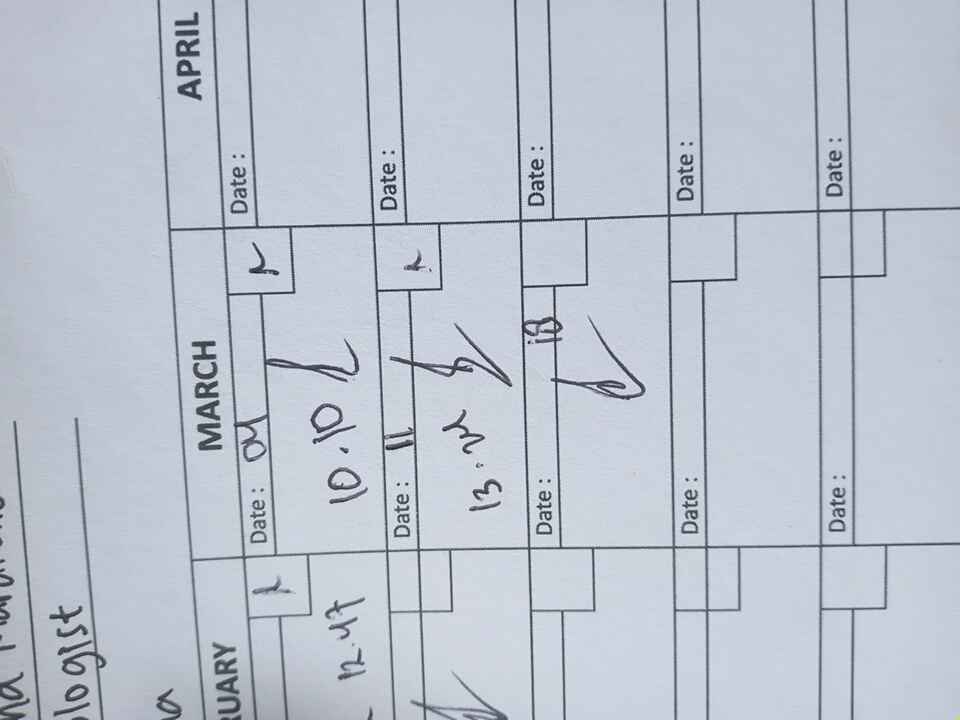 logist
RUARY
MARCH
APRIL
Date : 04
Date :
10.10
12.47
Date : 11
Date :
13.
Date : 18
Date :
Date :
Date :
Date :
Date :